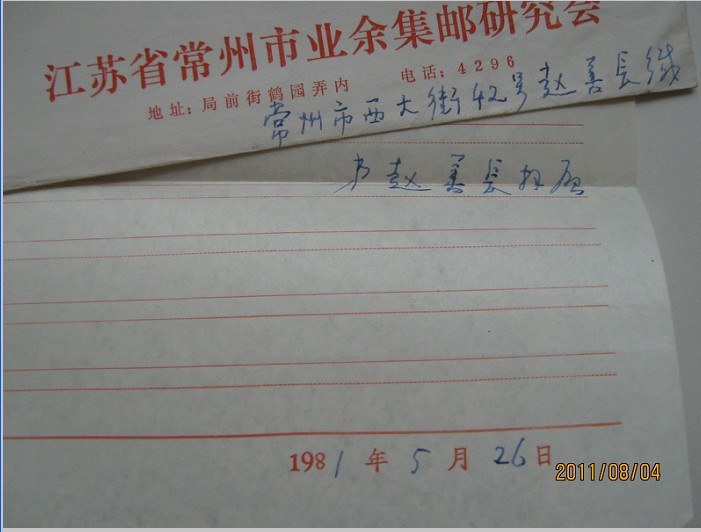 江苏省常州市业余集邮研究会
地址：局前街鹤园弄内 电话：4296
常州市西大街42号赵善长缄
赵善长
1981年5月26日
2011/08/04